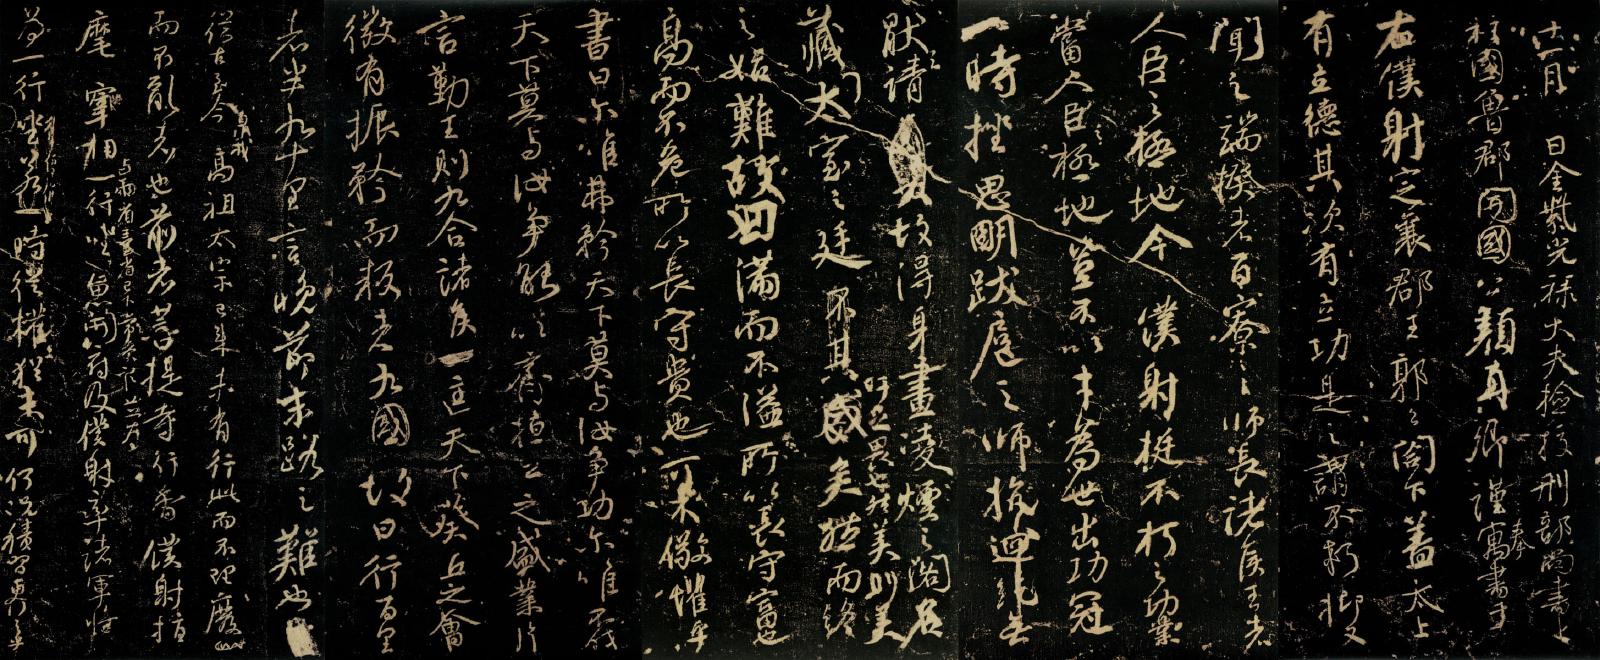 十一月　日金紫光祿大夫檢校刑部尚書上
柱國魯郡開國公顏真卿謹奉寓書于
右僕射定襄郡王郭公閣下蓋太上
有立德其次有立功是之謂不朽抑又
聞之端揆者百寮之師長諸侯王者
人臣之極地今僕射挺不朽之功業
當人臣極地豈不以才為世出功冠
一時挫思明跋扈之師抗迴紇無
厭之請故得身畫凌煙之閣名
藏太室之廷吁足畏也然美則美矣而終
之始難故曰滿而不溢所以長守富也
高而不危所以長守貴也可不儆懼乎
書曰爾唯弗矜天下莫與汝爭功爾唯不伐
天下莫與汝爭能以齊桓公之盛業片
言勤王則九合諸侯一匡天下葵丘之會
微有振矜而叛者九國故曰行百里
者半九十里言晚節末路之難也
從古至今暨我高祖太宗已來未有行此而不理廢此
而不亂者也前者菩提寺行香僕射指
麾宰相與兩省臺省已下常參官並為一行坐魚開府及僕射率諸軍將
為一行坐若一時從權猶未可何況積習更行之乎